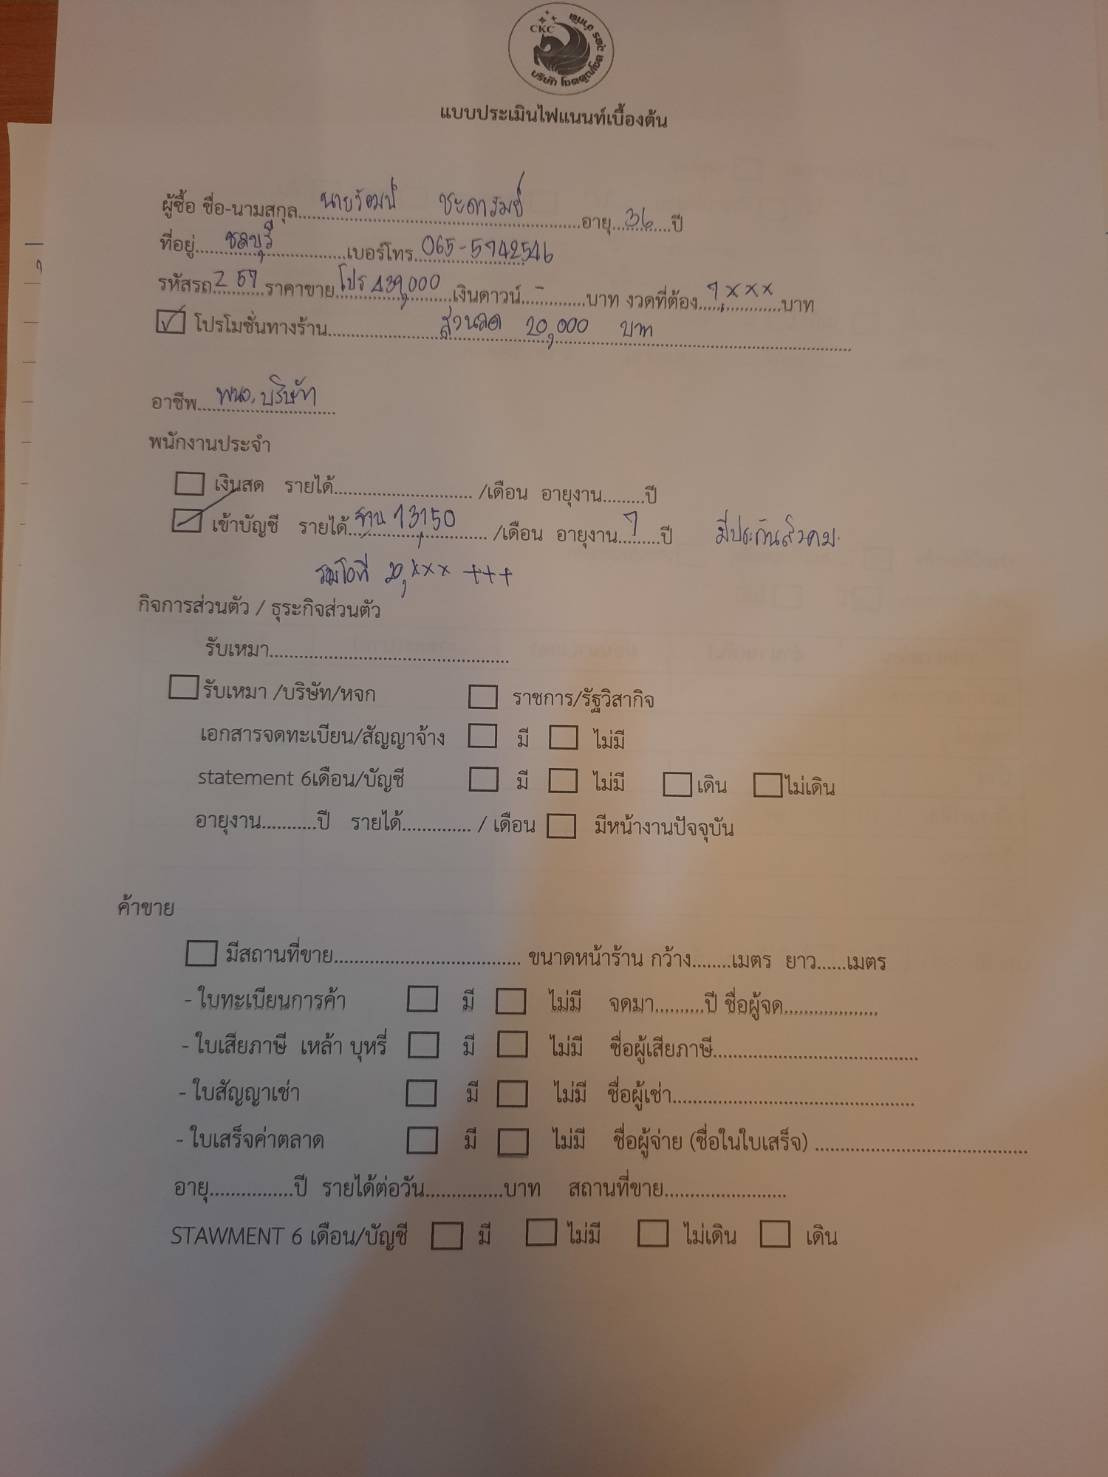 CKC
แบบประเมินไฟแนนท์เบื้องต้น
ผู้ซื้อ ชื่อ-นามสกุล...นาย...อายุ...36...ปี
ที่อยู่...ชลบุรี...เบอร์โทร...065-5942546
รหัสรถ...257...ราคาขาย...โปร 439,000...เงินดาวน์...-...บาท งวดที่ต้อง...7,xxx...บาท
☑ โปรโมชั่นทางร้าน...ส่วนลด 20,000 บาท
อาชีพ...พนง.บริษัท
พนักงานประจำ
☐ เงินสด รายได้.............../เดือน อายุงาน........ปี
☑ เข้าบัญชี รายได้...ฐาน 13,150.../เดือน อายุงาน...7...ปี มีประกันสังคม
รวมโอที 20,xxx +++
กิจการส่วนตัว / ธุระกิจส่วนตัว
รับเหมา..............................
☐ รับเหมา /บริษัท/หจก ☐ ราชการ/รัฐวิสากิจ
เอกสารจดทะเบียน/สัญญาจ้าง ☐ มี ☐ ไม่มี
statement 6เดือน/บัญชี ☐ มี ☐ ไม่มี ☐ เดิน ☐ ไม่เดิน
อายุงาน...........ปี รายได้............../ เดือน ☐ มีหน้างานปัจจุบัน
ค้าขาย
☐ มีสถานที่ขาย.............................. ขนาดหน้าร้าน กว้าง........เมตร ยาว......เมตร
- ใบทะเบียนการค้า ☐ มี ☐ ไม่มี จดมา..........ปี ชื่อผู้จด...................
- ใบเสียภาษี เหล้า บุหรี่ ☐ มี ☐ ไม่มี ชื่อผู้เสียภาษี..............................
- ใบสัญญาเช่า ☐ มี ☐ ไม่มี ชื่อผู้เช่า..............................
- ใบเสร็จค่าตลาด ☐ มี ☐ ไม่มี ชื่อผู้จ่าย (ชื่อในใบเสร็จ) ..............................
อายุ................ปี รายได้ต่อวัน...............บาท สถานที่ขาย........................
STAWMENT 6 เดือน/บัญชี ☐ มี ☐ ไม่มี ☐ ไม่เดิน ☐ เดิน